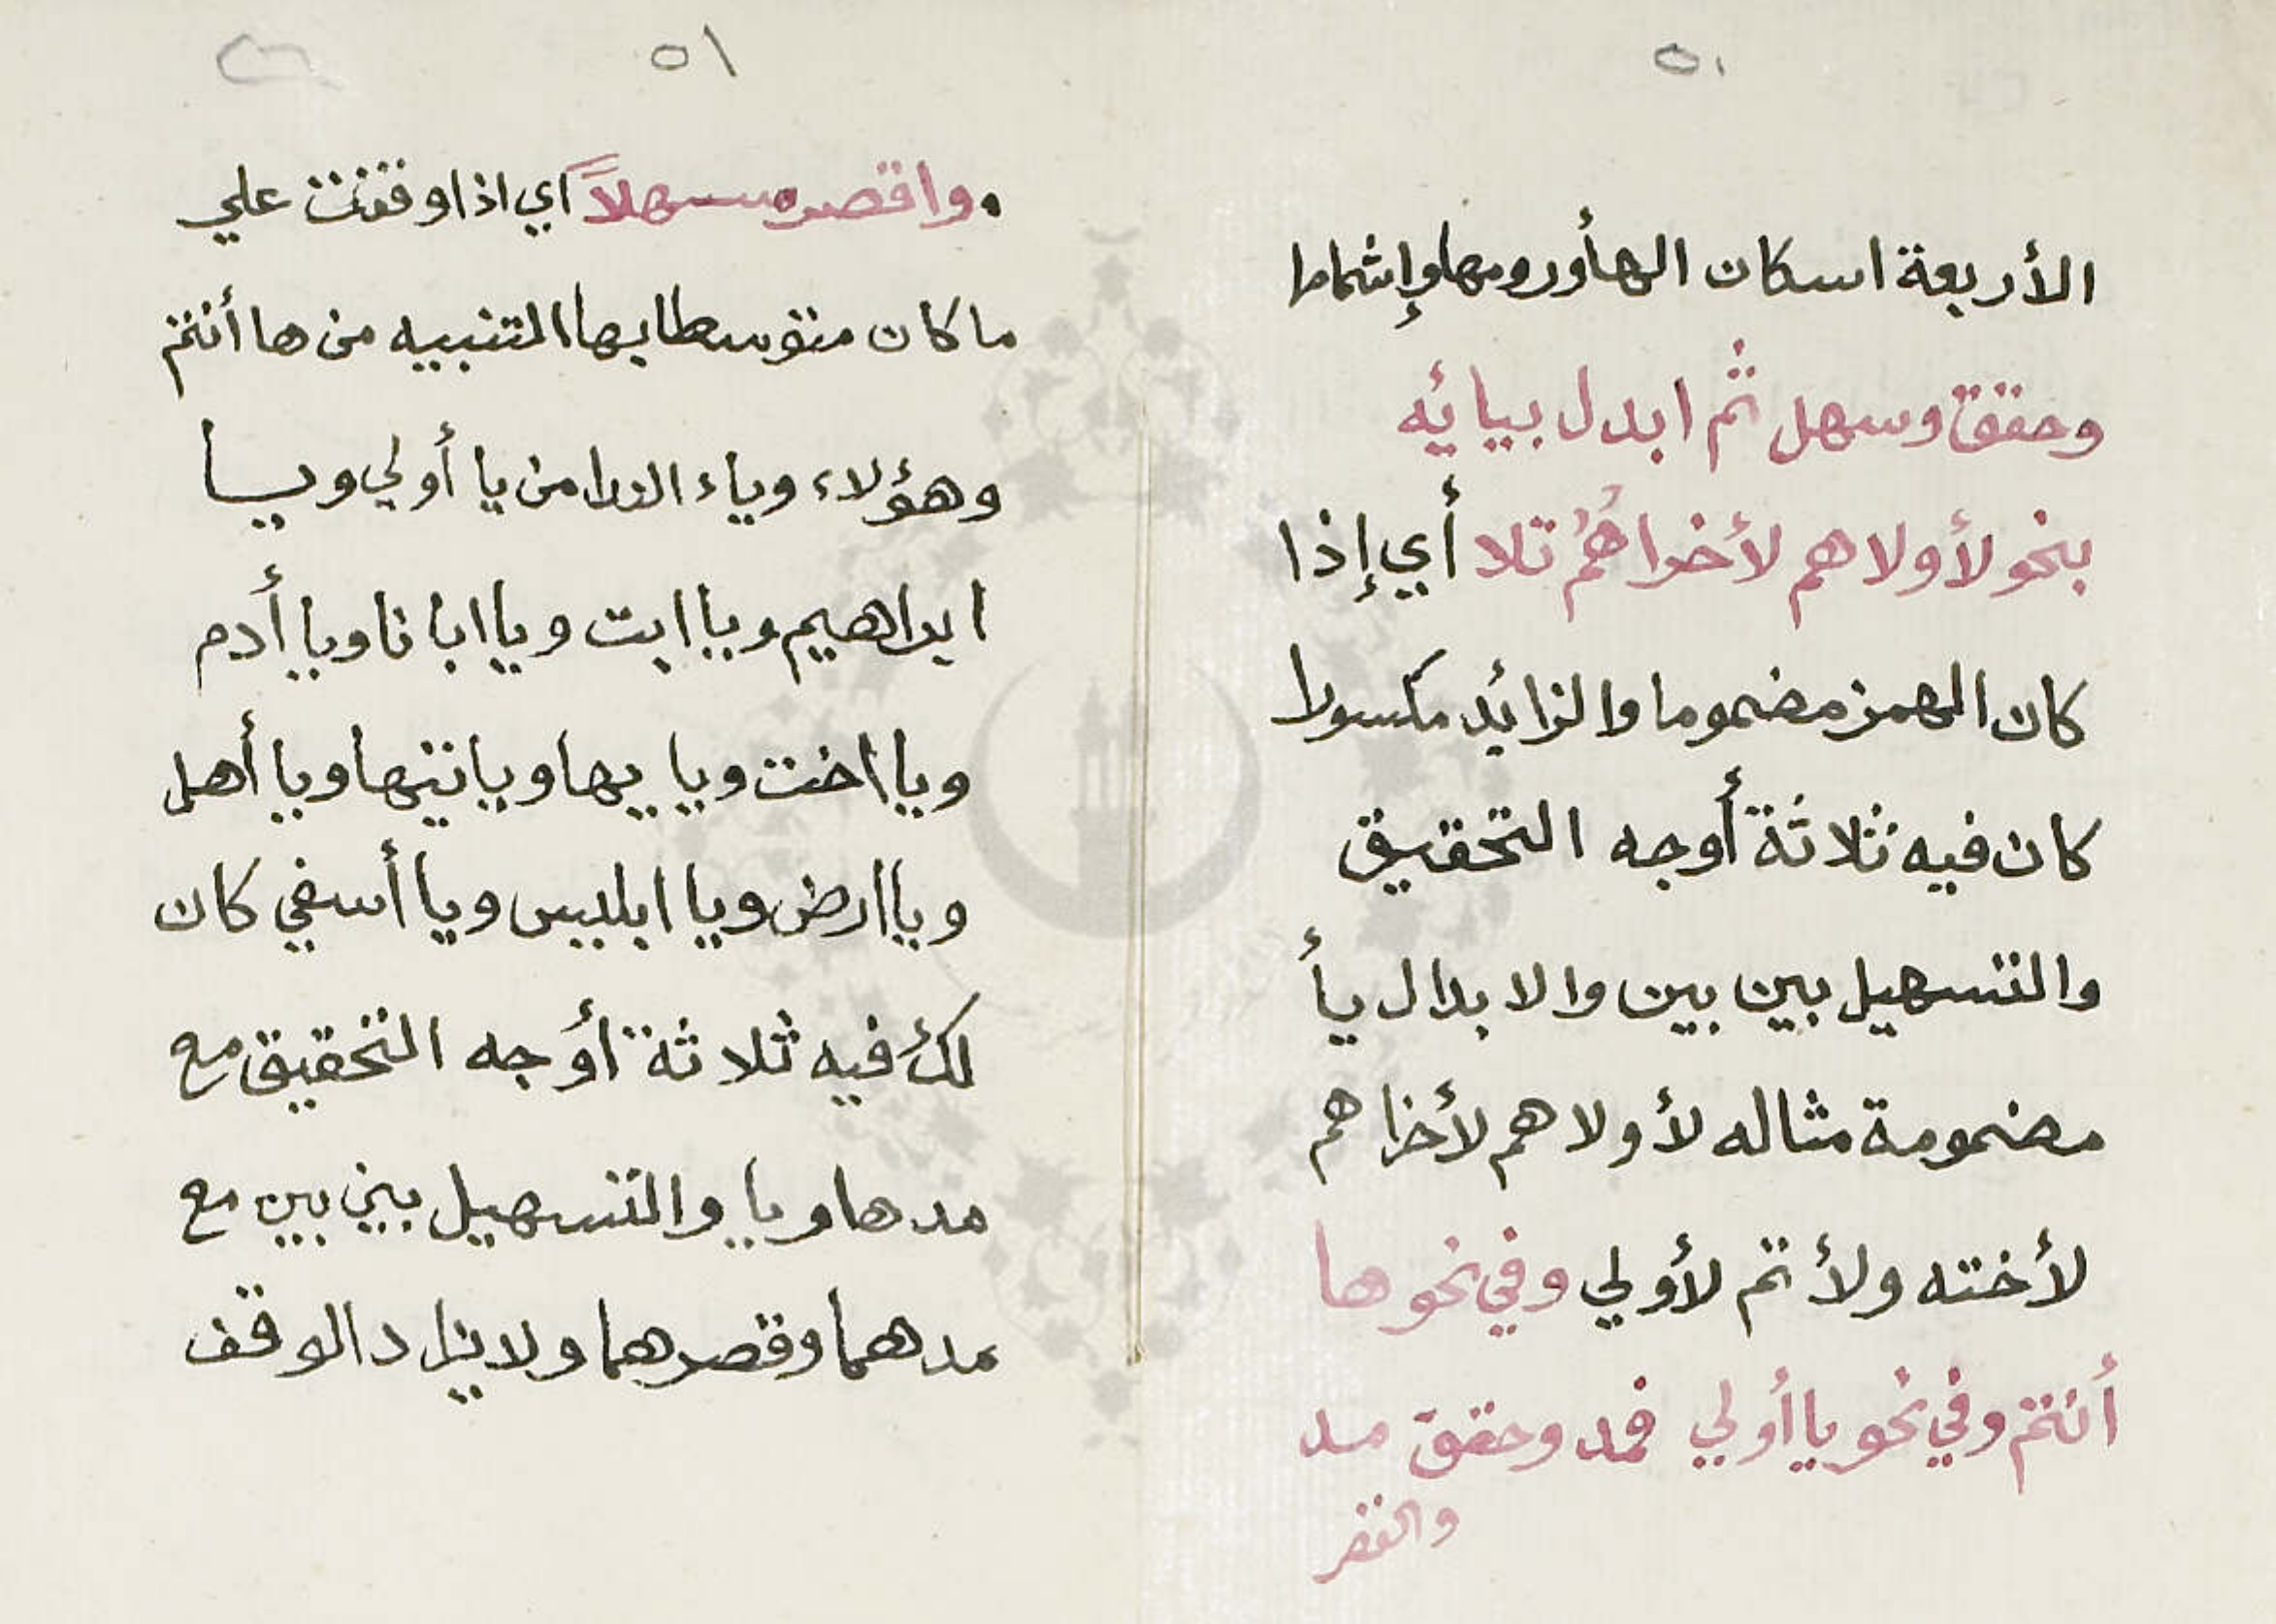 ٥٠
الأربعة اسكان الهأورومها وإشمامها
وحقق وسهل ثم ابدل بيائه
بنحو لأولاهم لأخراهُمُ تلا أي إذا
كان الهمز مضموما والزائد مكسورا
كان فيه ثلاثة أوجه التحقيق
والتسهيل بين بين والابدال يأ
مضمومة مثاله لأولاهم لأخراهم
لأخته ولأتم لأولي وفي نحوها
أنتم وفي نحو يا أولي فمد وحقق مد
٥١
واقصر مسهلاً أي اذا وقفت علي
ما كان متوسطا بها التنبيه من ها أنتم
وهؤلاء وياء الندا من يا أولي ويـا
ابراهيم ويا ابت ويا ابانا ويا أدم
ويا اخت ويا يها ويا تيها ويا أهل
ويا ارض ويا ابليس ويا أسفي كان
لك فيه ثلاثة أوجه التحقيق مع
مد ها ويا والتسهيل بين بين مع
مدهما وقصرهما ولا يزاد الوقف